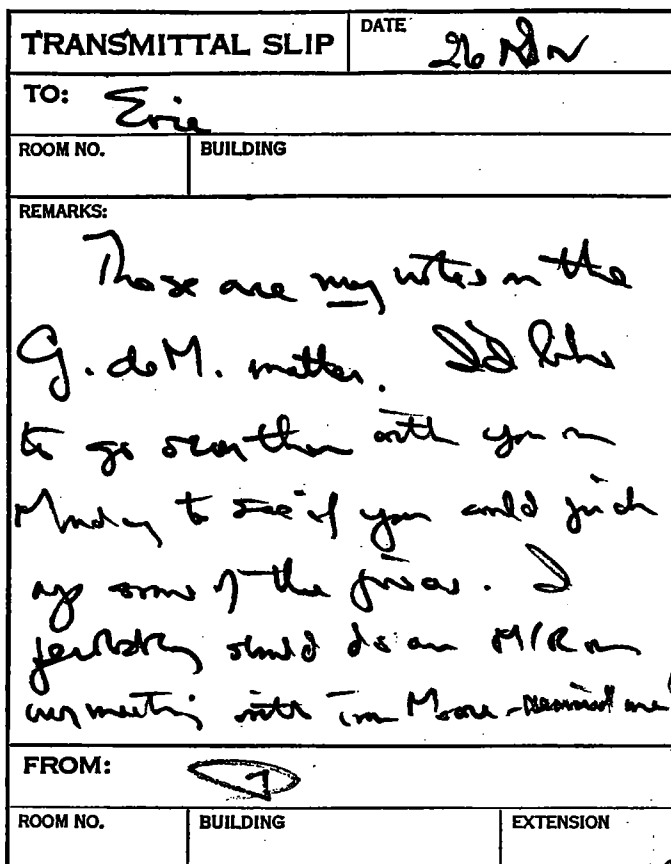 TRANSMITTAL SLIP
DATE
26 Nov
TO:
Eric
ROOM NO.
BUILDING
REMARKS:
These are my notes on the
G. de M. matter. I'd like
to go over them with you on
Monday to see if you could pick
up some of the pieces. I
probably should do an M/R on
our meeting with Tom Moore - remind me
FROM:
ROOM NO.
BUILDING
EXTENSION